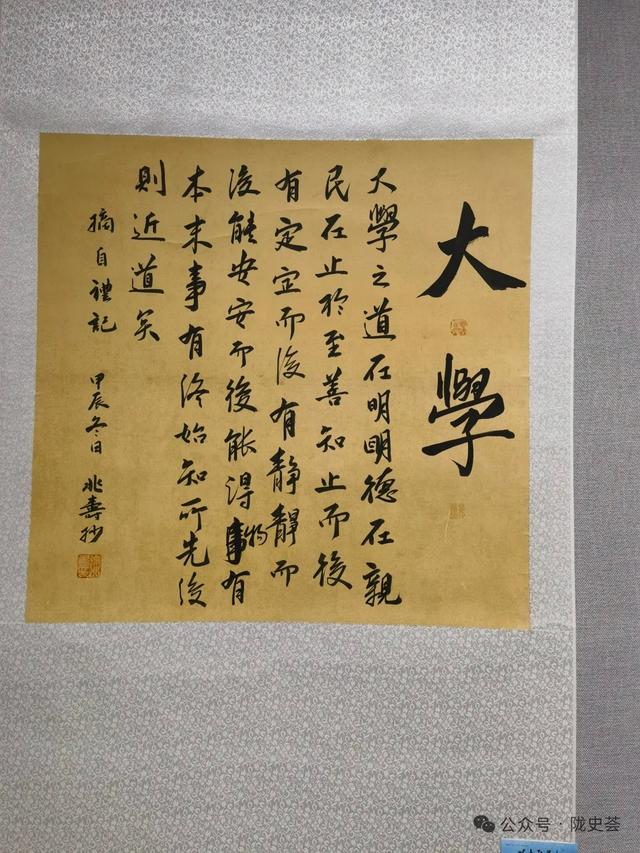 大學
大學之道在明明德在親
民在止於至善知止而後
有定定而後有靜靜而
後能安安而後能得事物有
本末事有終始知所先後
則近道矣
摘自禮記
甲辰冬日 兆壽抄
公众号·陇史荟